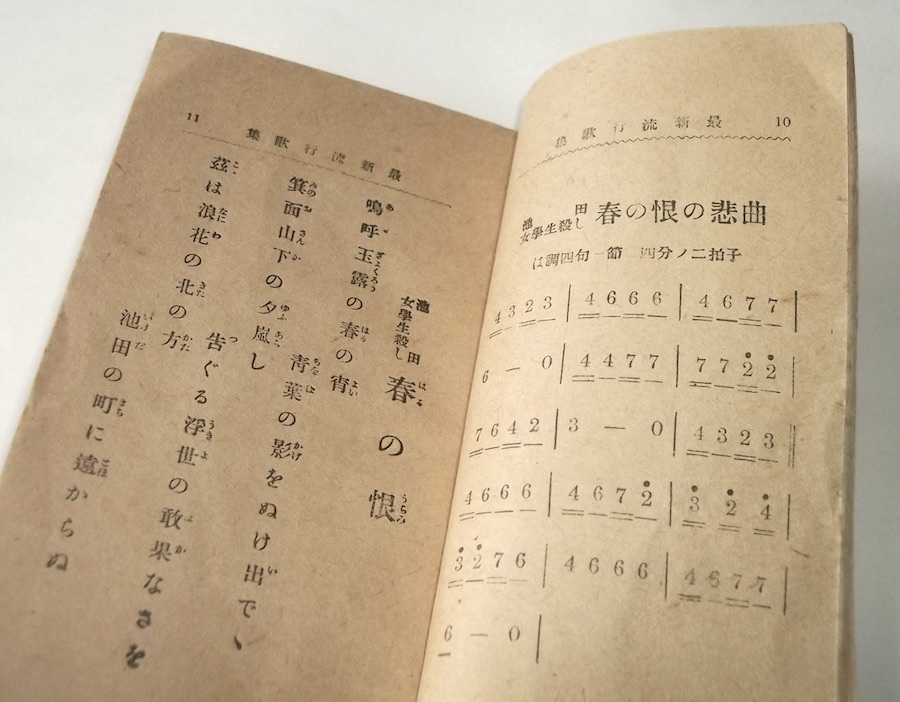 10
最新流行歌集
池田
女學生殺し
春の恨の悲曲
は調四句一節 四分ノ二拍子
4 3 2 3 | 4 6 6 6 | 4 6 7 7 |
6 — 0 | 4 4 7 7 | 7 7 2̇ 2̇ |
7 6 4 2 | 3 — 0 | 4 3 2 3 ||
4 6 6 6 | 4 6 7 2̇ | 3̇ 2̇ 4̇ |
3̇ 2̇ 7 6 | 4 6 6 6 | 4 6 7 7 |
6 — 0 |
最新流行歌集
11
池田
女學生殺し
春の恨
嗚呼玉露の春の宵
青葉の影をぬけ出で、
箕面山下の夕嵐し
告ぐる浮世の敢果なさを
茲は浪花の北の方
池田の町に遠からぬ